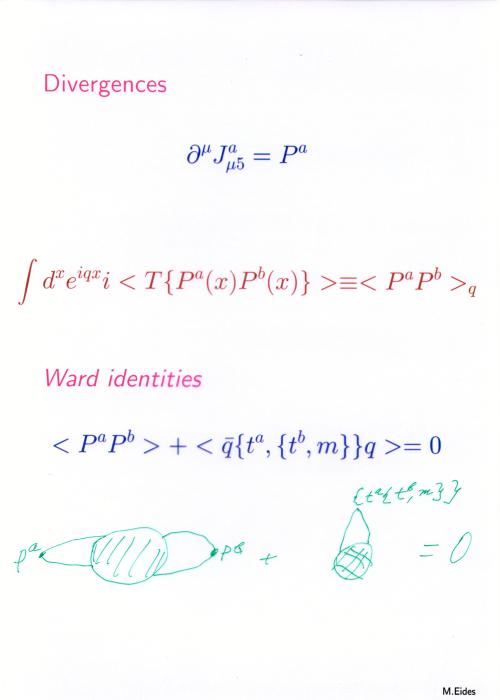 Divergences
∂^μ J^a_{μ5} = P^a
∫ d^x e^{iqx} i < T{P^a(x)P^b(x)} >≡< P^a P^b >_q
Ward identities
< P^a P^b > + < q̄{t^a, {t^b, m}}q >= 0
{t^a{t^b, m}}
P^a P^b + = 0
M.Eides